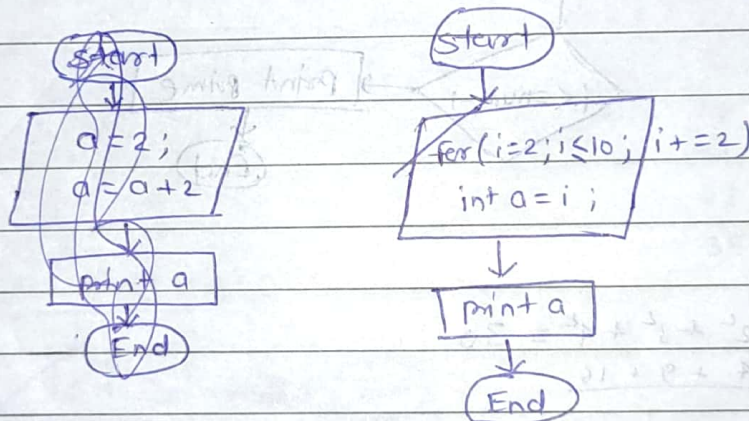 start
a = 2;
a = a + 2
print a
End
start
for(i=2; i≤10; i+=2)
int a = i ;
print a
End